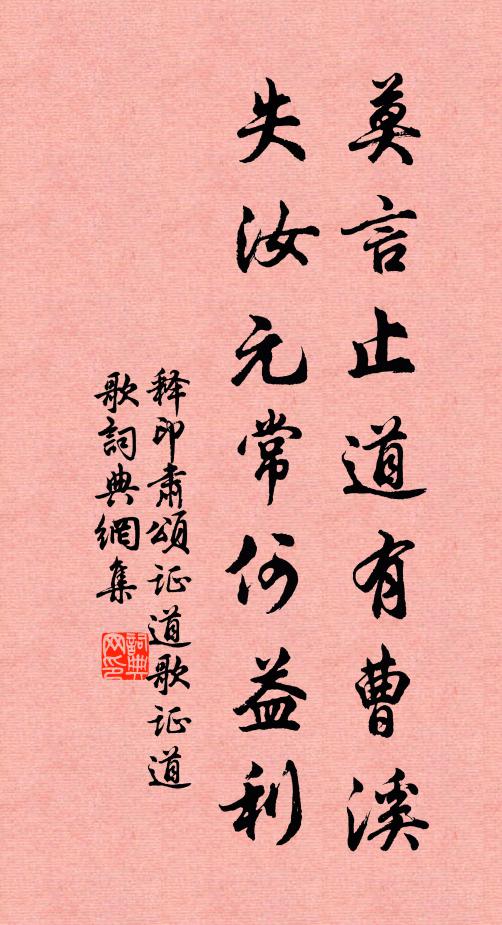 莫言止道有曹溪
失汝元常何益利
释印肃颂证道歌证道
歌詞典網集